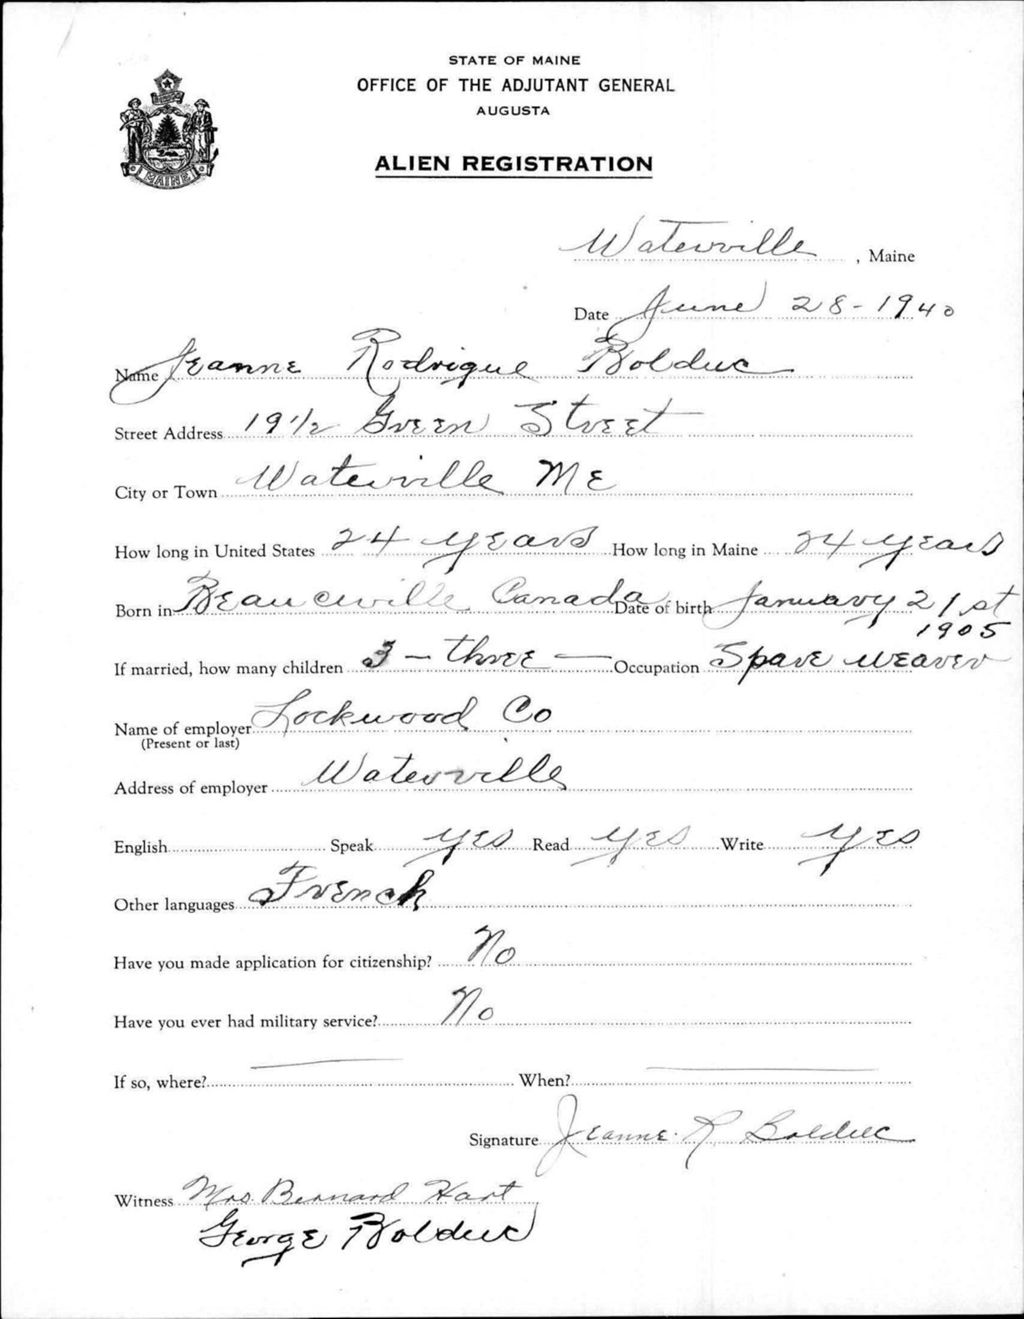 STATE OF MAINE
OFFICE OF THE ADJUTANT GENERAL
AUGUSTA
MAINE
ALIEN REGISTRATION
Waterville, Maine
Date June 28-1940
Name Jeanne Rodrigue Bolduc
Street Address 19 1/2 Green Street
City or Town Waterville ME
How long in United States 24 years How long in Maine 24 years
Born in Beauceville Canada Date of birth January 21st
1905
If married, how many children 3 - three - Occupation Spare weaver
Name of employer Lockwood Co
(Present or last)
Address of employer Waterville
English Speak yes Read yes Write yes
Other languages French
Have you made application for citizenship? No
Have you ever had military service? No
If so, where? When?
Signature Jeanne R Bolduc
Witness Mrs Bernard Hart
George Bolduc